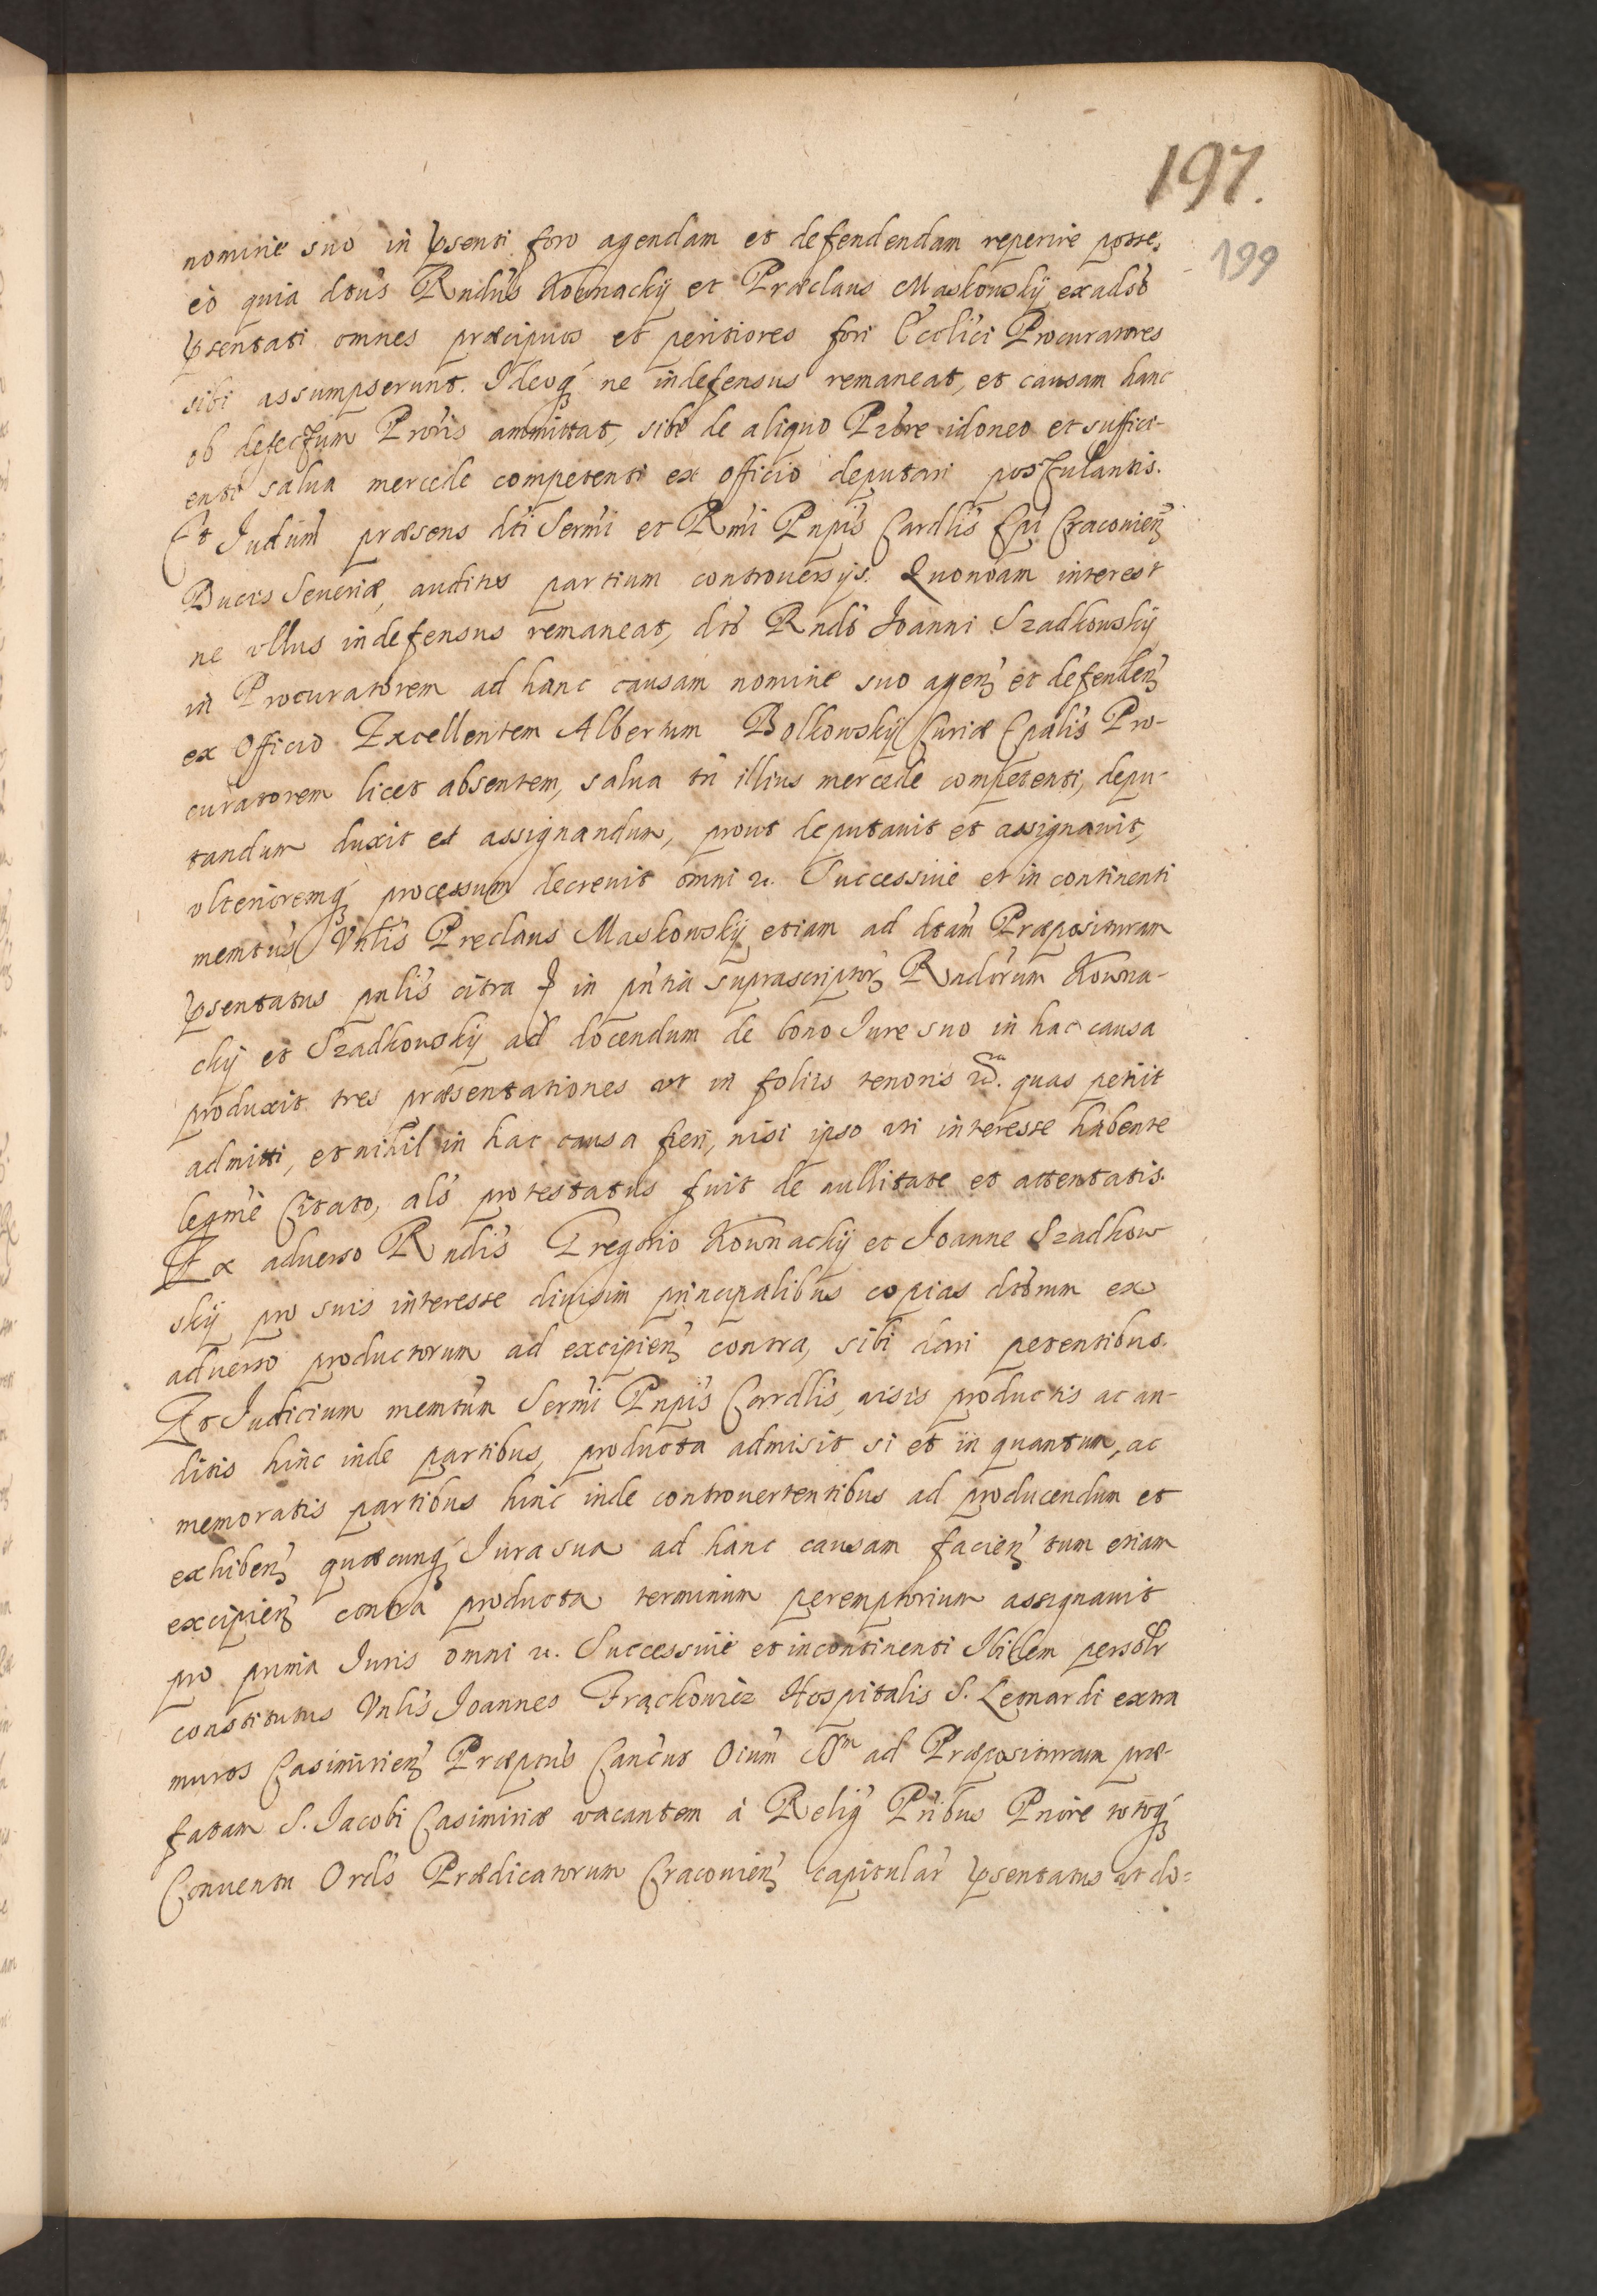 197.
199
nomine suo in psenti foro agendam et defendendam reperire posse,
eò quia dtus Rndus Kownackÿ et Præclarus Maskowskÿ ex adso
psentati omnes præcipuos et peritiores fori Ecclici Procuratores
sibi assumpserunt. Ideoq ne indefensus remaneat, et causam hanc
ob defectum Pròris ammittat, sibi de aliquo Pròre idoneo et suffici-
enti salua mercede competenti ex officio deputari postulantis.
Et Judium præsens dti Sermi et Rmi Pnpis Cardlis Epi Cracouien
Ducis Seueriæ, auditis partium controuersÿs. Quoniam interest
ne vllus indefensus remaneat, dto Rndo Joanni Szadkowskÿ
in Procuratorem ad hanc causam nomine suo agen et defenden
ex Officio Excellentem Albertum Bolkowskÿ Curiæ Epalis Pro-
curatorem licet absentem, salua tn illius mercede competenti, depu-
tandum duxit et assignandum, prout deputauit et assignauit,
vlterioremq processum decreuit omni r. Successiuè et in continenti
memtus Vnlis Preclarus Maskowskÿ etiam ad dtam Præposituram
psentatus pnlis citra in pntia suprascriptor Rndorum Kowna-
ckÿ et Szadkowskÿ ad docendum de bono Jure suo in hac causa
produxit tres præsentationes vt in folijs tenoris quas petijt
admitti, et nihil in hac causa fieri, nisi ipso vti interesse habente
legmè Citato, als protestatus fuit de nullitate et attentatis.
Ex aduerso Rndis Gregorio Kownackÿ et Joanne Szadkow
skÿ pro suis interesse diuisim principalibus copias dtorum ex
aduerso productorum ad excipien contra, sibi dari petentibus.
Et Judicium memtum Sermi Pnpis Cardlis, visis productis ac au-
ditis hinc inde partibus, producta admisit si et in quantum, ac
memoratis partibus hinc inde controuertentibus ad producendum et
exhiben quæcunq Jura sua ad hanc causam facien tum etiam
excipien contra producta terminum peremptorium assignauit
pro prima Juris omni r. Successiuè et incontinenti Ibidem personlr
constitutus Vnlis Joannes Frąckowicz Hospitalis S. Leonardi extra
muros Casimirien Præptus Cancus Oium ad Præposituram præ-
fatam S. Jacobi Casimiriæ vacantem à Relig Pribus Priore totoq
Conuentu Ordis Prædicatorum Cracouien capitular psentatus at do=